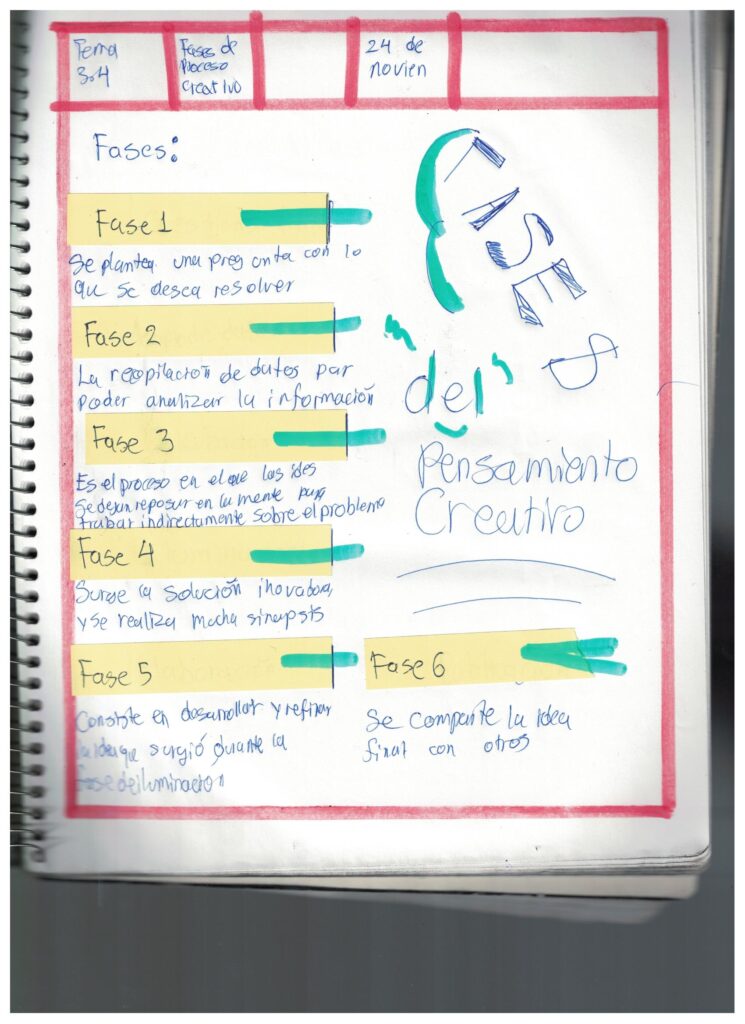 Tema
3.4
Fases de
Proceso
Creativo
24 de
novien
Fases:
Fase 1
Se plantea una pregunta con lo
qu se desea resolver
Fase 2
La recopilación de datos par
poder analizar la información
Fase 3
Es el proceso en el que las ides
se dejan reposar en la mente para
trabar indirectamente sobre el problema
Fase 4
Surge la solución inovadora,
y se realiza mucha sinapsis
Fase 5
Consiste en desarrollar y refinar
la idea que surgió durante la
fase de iluminacion
Fase 6
Se comparte la idea
final con otros
FASES
del
Pensamiento
Creativo